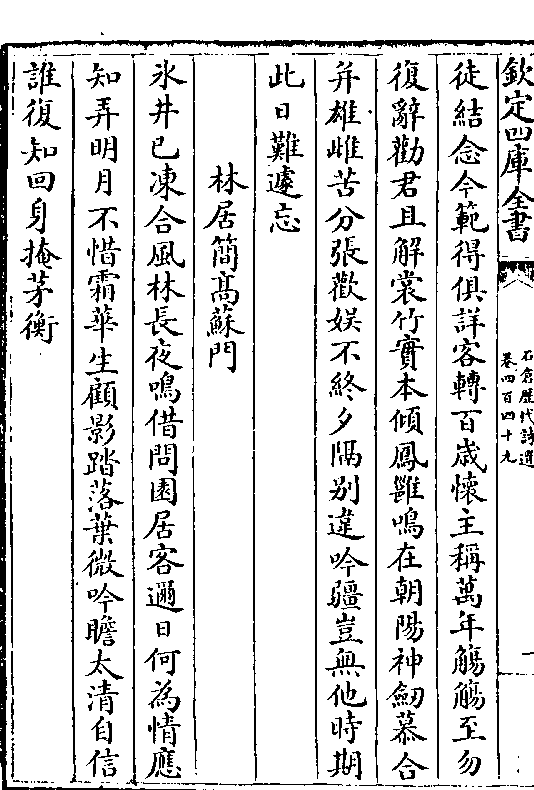 欽定四庫全書
石倉歷代詩選
卷四百四十九
徒結念今範得俱詳客轉百歲懷主稱萬年觴觴至勿
復辭勸君且解裳竹實本傾鳳雛鳴在朝陽神劒慕合
并雄雌苦分張歡娱不終夕隔别違吟疆豈無他時期
此日難遽忘
林居簡髙蘇門
氷井已凍合風林長夜鳴借問園居客邇日何為情應
知弄明月不惜霜華生顧影踏落葉微吟瞻太清自信
誰復知回身掩茅衡